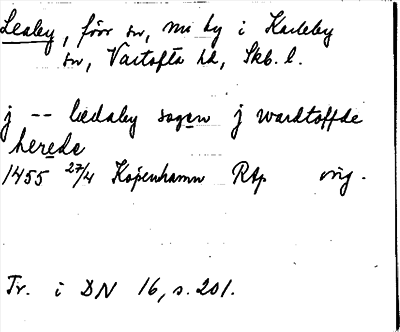 Leaby, förr sn, nu by i Karleby
sn, Vartofta hd, Skb. l.
j -- lædaby sogen j wardtoffde
herede
1455 27/4 Köpenhamn Rap orig.
Tr. i DN 16, s. 201.